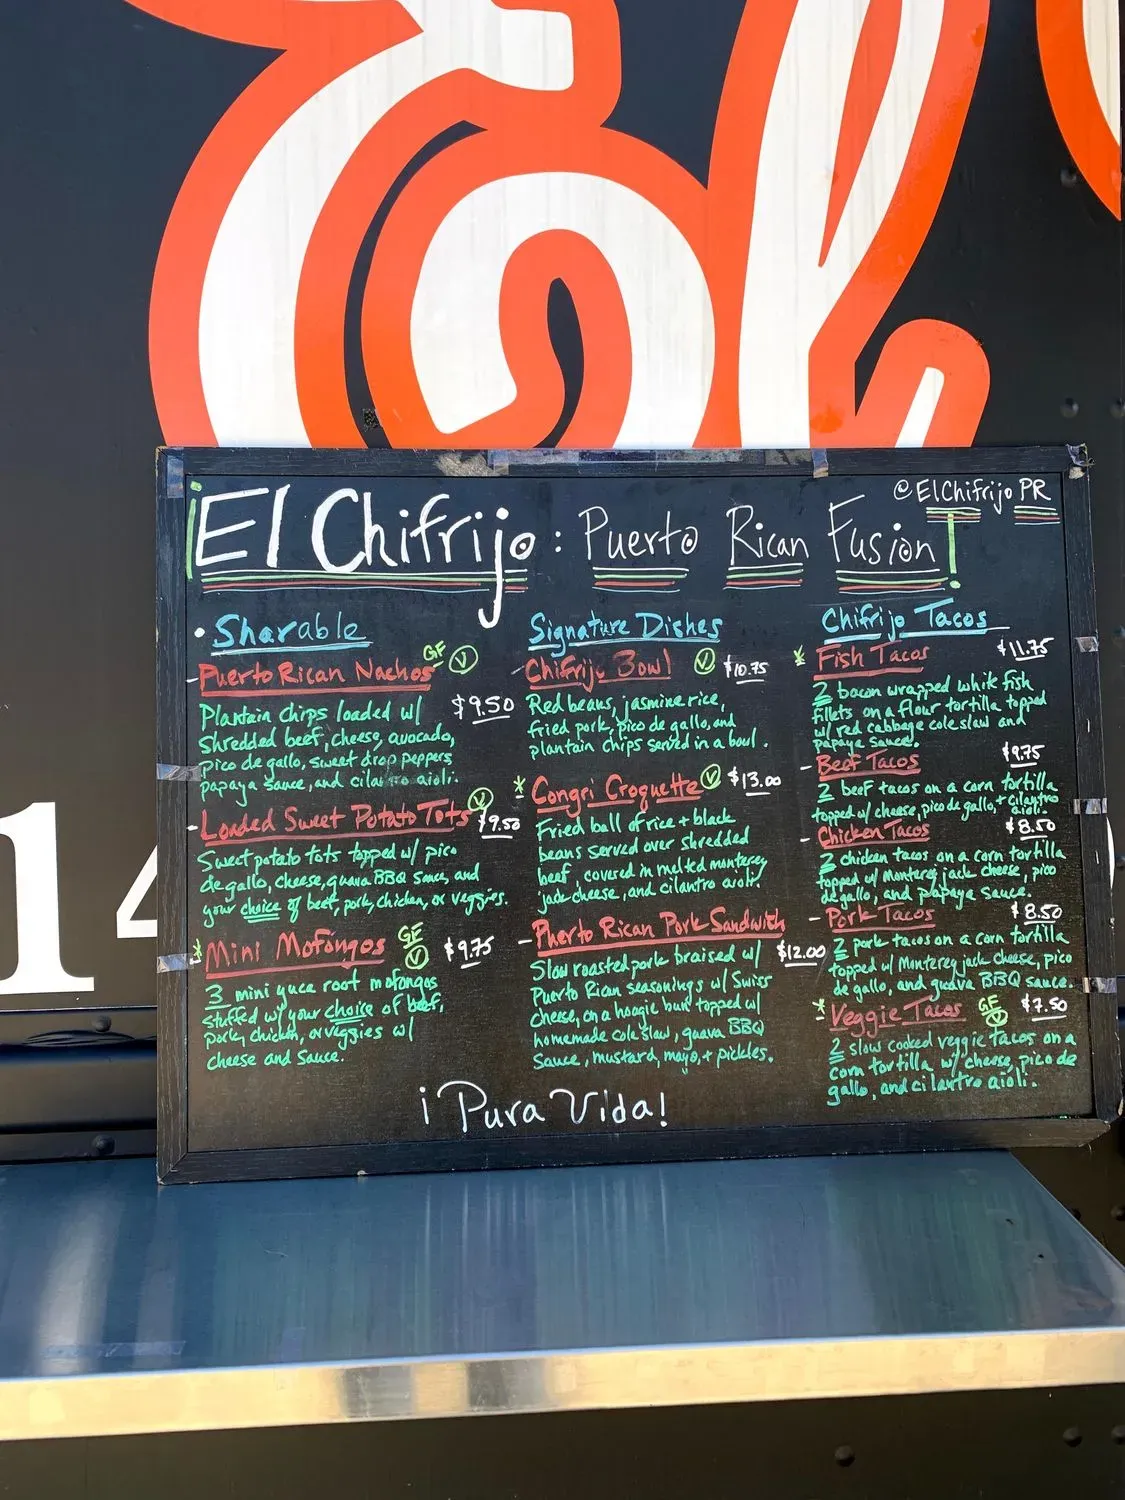 El
@ElChifrijo PR
¡El Chifrijo: Puerto Rican Fusion!
• Sharable
- Puerto Rican Nachos GF V
$9.50
Plantain chips loaded w/
shredded beef, cheese, avocado,
pico de gallo, sweet drop peppers
papaya sauce, and cilantro aioli.
- Loaded Sweet Potato Tots V $9.50
Sweet potato tots topped w/ pico
de gallo, cheese, guava BBQ sauce, and
your choice of beef, pork, chicken, or veggies.
* Mini Mofongos GF V $9.75
3 mini yuca root mofongos
stuffed w/ your choice of beef,
pork, chicken, or veggies w/
cheese and sauce.
Signature Dishes
- Chifrijo Bowl V $10.75
Red beans, jasmine rice,
fried pork, pico de gallo, and
plantain chips served in a bowl.
* Congri Croquette V $13.00
Fried ball of rice + black
beans served over shredded
beef, covered in melted monterey
jack cheese, and cilantro aioli.
- Puerto Rican Pork Sandwich
$12.00
Slow roasted pork braised w/
Puerto Rican seasonings w/ Swiss
cheese, on a hoagie bun topped w/
homemade coleslaw, guava BBQ
sauce, mustard, mayo, + pickles.
Chifrijo Tacos
* Fish Tacos $11.75
2 bacon wrapped white fish
fillets on a flour tortilla topped
w/ red cabbage coleslaw and
papaya sauce.
- Beef Tacos $9.75
2 beef tacos on a corn tortilla
topped w/ cheese, pico de gallo, + cilantro
aioli
- Chicken Tacos $8.50
2 chicken tacos on a corn tortilla
topped w/ Monterey jack cheese, pico
de gallo, and papaya sauce.
- Pork Tacos $8.50
2 pork tacos on a corn tortilla
topped w/ Monterey jack cheese, pico
de gallo, and guava BBQ sauce.
* Veggie Tacos GF V $7.50
2 slow cooked veggie tacos on a
corn tortilla w/ cheese, pico de
gallo, and cilantro aioli.
¡Pura Vida!
14